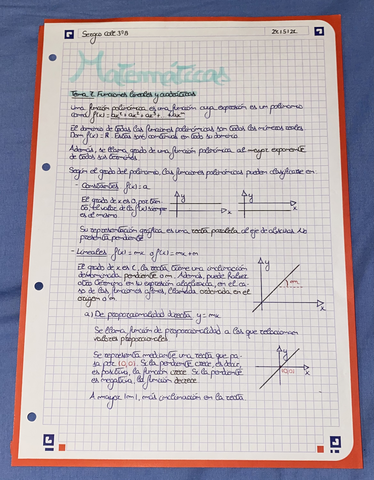 Sergio 3ºB
Matemáticas
Tema 7. Funciones lineales y cuadráticas
Una función polinómica es una función cuya expresión es un polinomio
como f(x) =
El dominio de todas las funciones polinómicas son todos los números reales
Dom f(x) = R. Estas son continuas en todo su dominio
Además, se llama grado de una función polinómica al mayor exponente
de todos sus términos
Según el grado del polinomio, las funciones polinómicas pueden clasificarse en
- Constantes f(x) = a
El grado de x es 0, por tan
to, el valor de la f(x) siempre
es el mismo
y
x
y
x
Su representación gráfica es una recta paralela al eje de abscisas. No
presenta pendiente
- Lineales f(x) = mx o f(x) = mx + n
El grado de x es 1, la recta tiene una inclinación
denominada pendiente o m. Además, puede haber
otro término en su expresión algebraica, en el ca-
so de las funciones afines, llamada ordenada en el
origen o n
y
m
x
a) De proporcionalidad directa y = mx
Se llama función de proporcionalidad a las que relacionan
valores proporcionales
Se representa mediante una recta que pa-
sa por (0,0). Si la pendiente crece, es decir,
es positiva, la función crece. Si la pendiente
es negativa, la función decrece
y
x
(0,0)
A mayor |m|, más inclinación en la recta